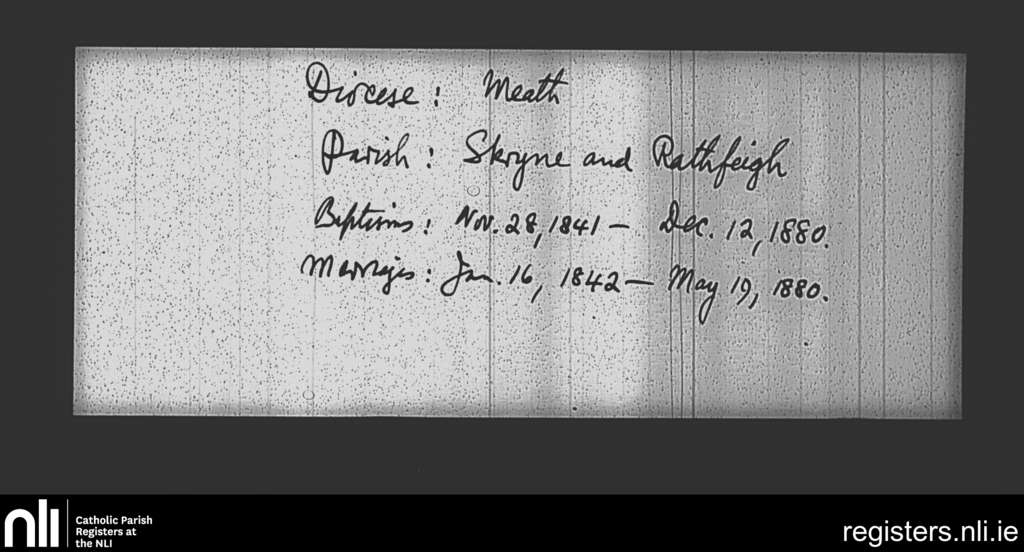 Diocese: Meath
Parish: Skryne and Rathfeigh
Baptisms: Nov. 28, 1841 – Dec. 12, 1880.
Marriages: Jan. 16, 1842 – May 19, 1880.
nli
Catholic Parish
Registers at
the NLI
registers.nli.ie